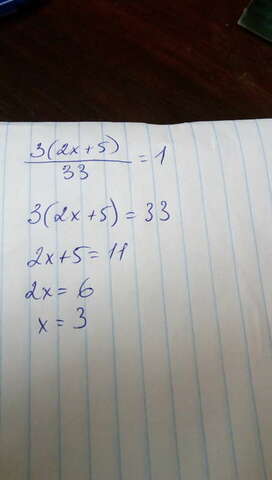 3(2x+5)
33
=1
3(2x+5)=33
2x+5=11
2x=6
x=3